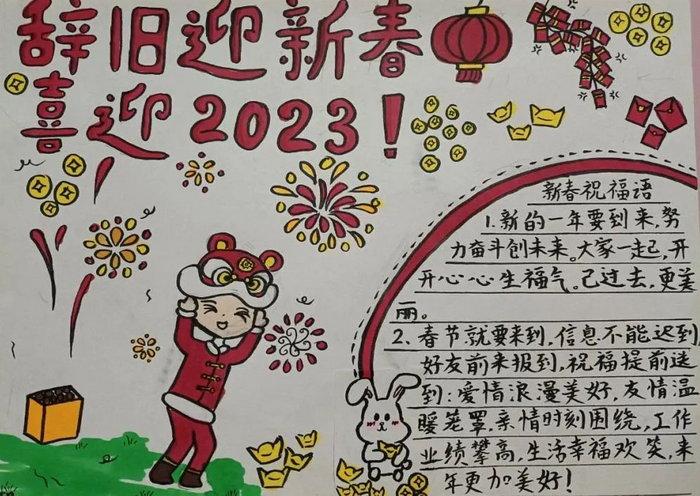 辞旧迎新春
喜迎2023！
新春祝福语
1.新的一年要到来,努
力奋斗创未来。大家一起,开
开心心生福气。已过去,更美
丽。
2、春节就要来到,信息不能迟到
好友前来报到,祝福提前送
到:爱情浪漫美好,友情温
暖笼罩,亲情时刻围绕,工作
业绩攀高,生活幸福欢笑,来
年更加美好!